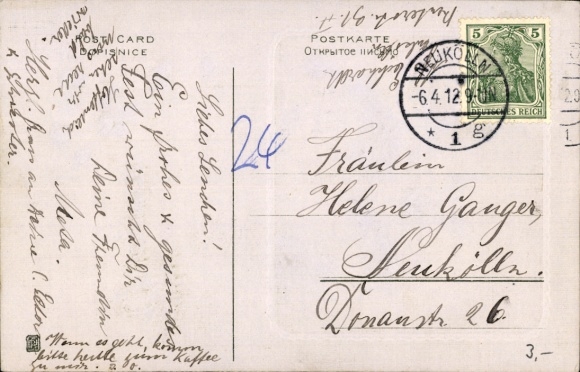 POST CARD
DOPISNICE
POSTKARTE
Открытое письмо
NEUKÖLLN
-6.4.12.9-10N
* 1 g
5 5
DEUTSCHES REICH
24
Liebes Lenchen!
Ein frohes & gesundes
Fest wünscht Dir
Deine Freundin
Meta.
Herzl. Gruss an Deine l. Eltern
& Bruder.
Wenn es geht, komm
bitte heute zum Kaffee
zu mir.
Fräulein
Helene Ganger,
Neukölln.
Donaustr 26.
3,-